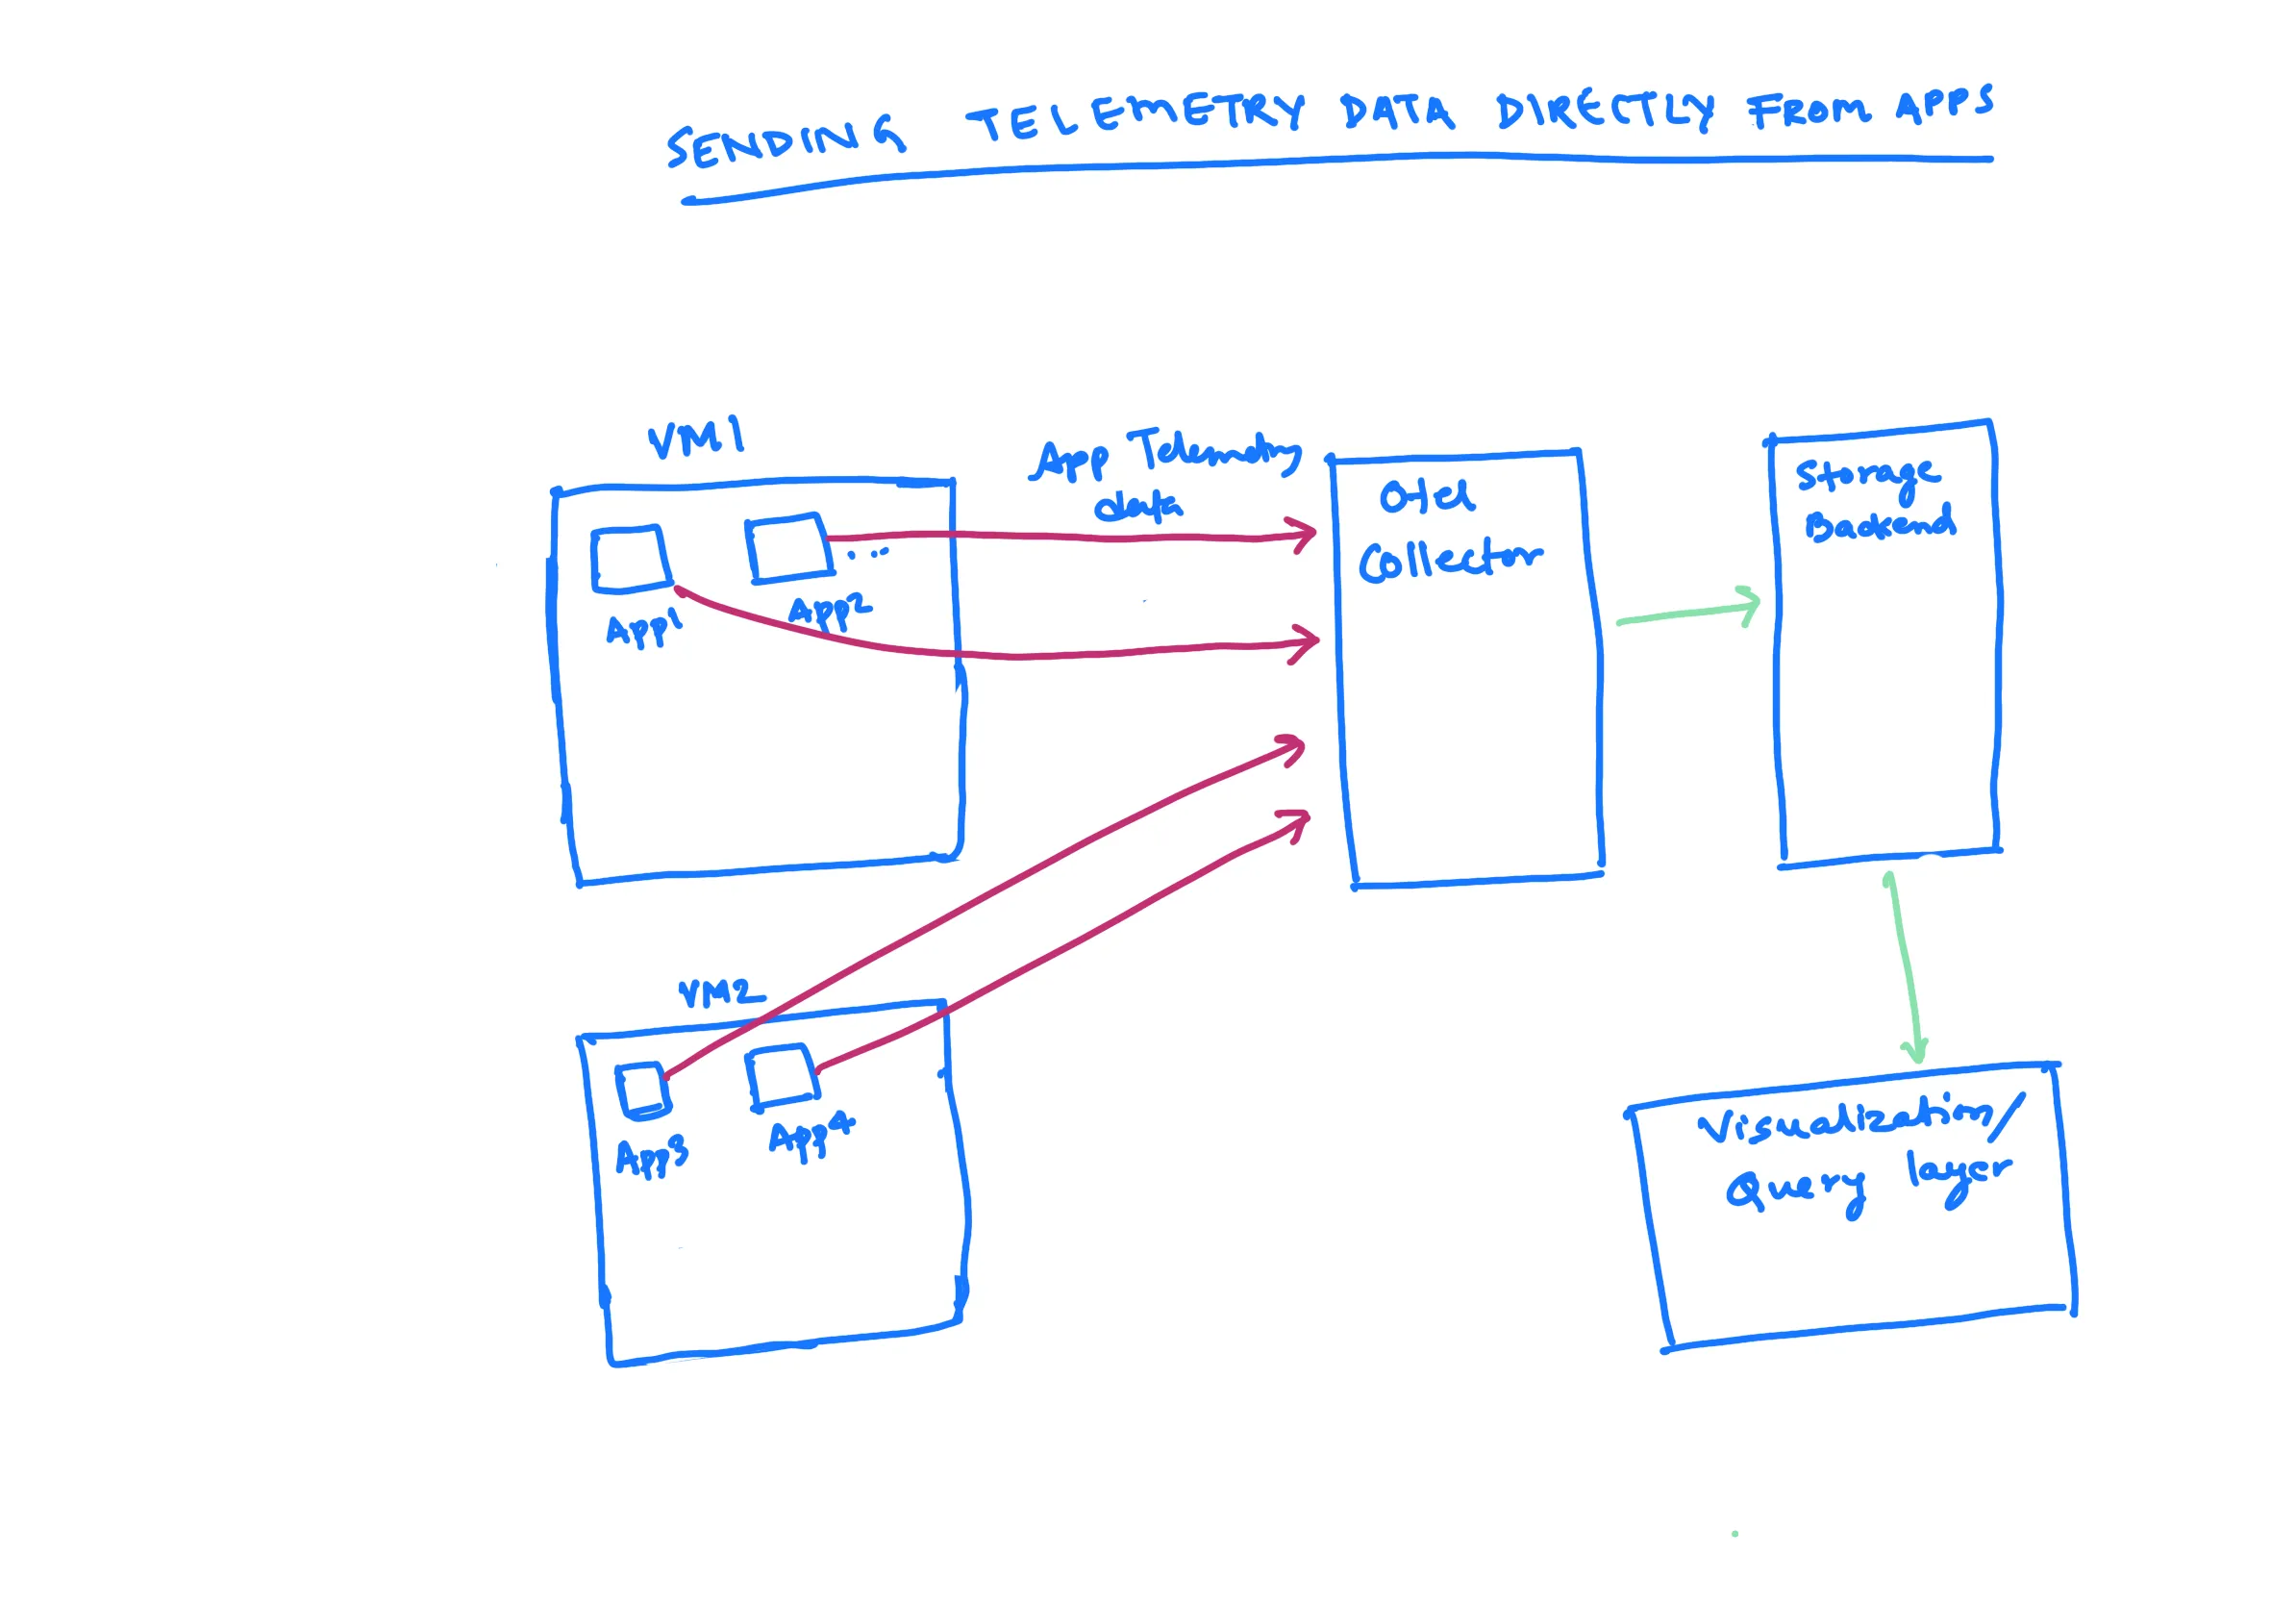 SENDING TELEMETRY DATA DIRECTLY FROM APPS
VM1
App Telemetry
data
Otel
Collector
Storage
Backend
App1
App2
...
VM2
App3
App4
Visualization/
Query layer